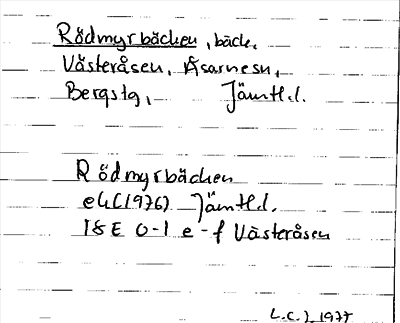 Rödmyrbäcken, bäck,
Västeråsen, Åsarnesn,
Bergstg, Jämtl.l.
Rödmyrbäcken
ek(1976) Jämtl.l.
18E 0-1 e-f Västeråsen
L.C.J. 1977